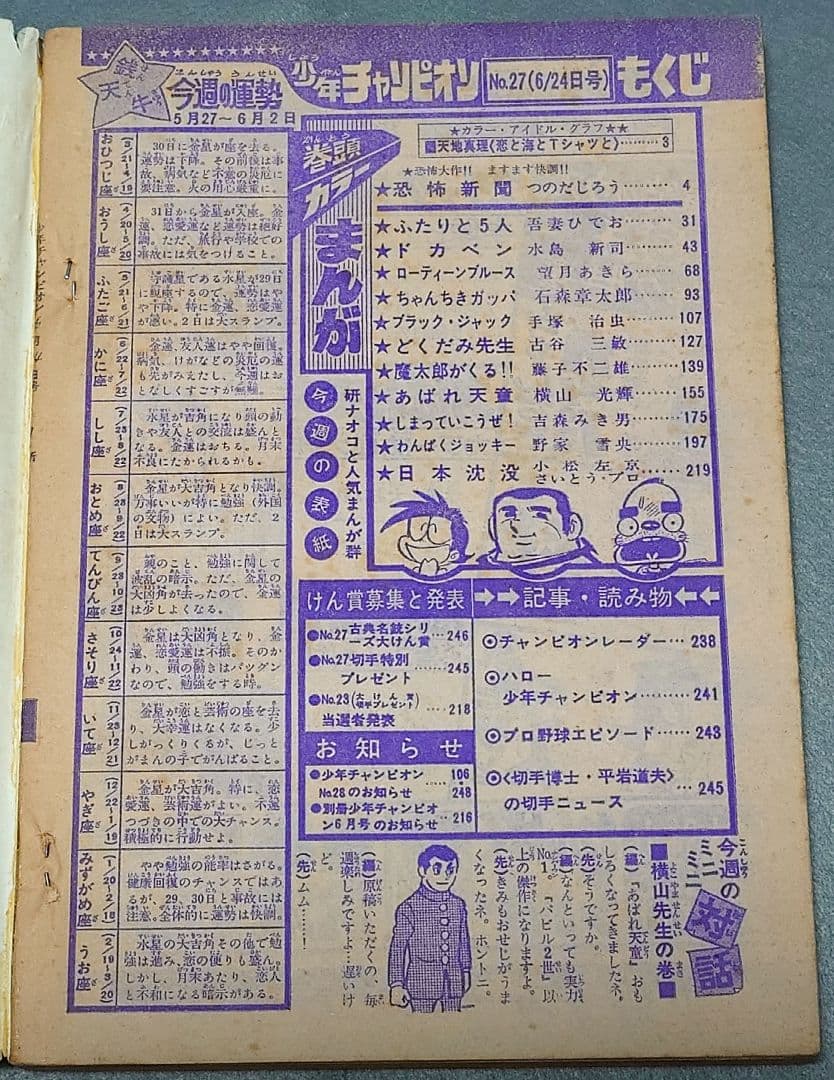 少年チャンピオン No.27(6/24日号) もくじ
銭天牛
今週の運勢
5月27〜6月2日
おひつじ座
3/21-4/19
30日に金星が座を去る。
運勢は下降。その前後は事
故、病気など不意の災厄に
要注意。火の用心厳重に。
おうし座
4/20-5/20
31日から金星が入座。金
運、恋愛運など運勢は絶好
調。ただ、旅行や学校での
事故には気をつけること。
ふたご座
5/21-6/21
守護星である水星が29日
に観座するので、運勢はや
や下降。特に金運、恋愛運
が悪い。2日は大スランプ。
かに座
6/22-7/22
金運、友人運はやや回復。
病気、けがなどの災厄の運
も先がみえたし、今週はお
となしくすごすが無難。
しし座
7/23-8/22
水星が吉角になり頭の動
きや友人との交流は盛んと
なる。金運はおちる。月末
不良にたかられるかも。
おとめ座
8/23-9/22
金星が大吉角となり快調。
万事いいが特に勉強(外国
の文物)によい。ただ、2
日は大スランプ。
てんびん座
9/23-10/23
親のこと、勉強に関して
波乱の暗示。ただ、金星の
大凶角が去ったので、金運
は少しよくなる。
さそり座
10/24-11/22
金星は大凶角となり、金
運、恋愛運は不振。そのか
わり、頭の働きはバツグン
なので、勉強をする時。
いて座
11/23-12/21
金星が恋と芸術の座を去
り、大幸運はなくなる。少
しがっくりくるが、じっと
がまんの子でがんばること。
やぎ座
12/22-1/19
金星が大吉角。特に、恋
愛運、芸術運がよい。不運
つづきの中での大チャンス。
積極的に行動せよ。
みずがめ座
1/20-2/18
やや勉強の能率はさがる。
健康回復のチャンスではあ
るが、29、30日と事故には
注意。全体的に運勢は快調。
うお座
2/19-3/20
水星の大吉角その他で勉
強は進み、恋の便りも盛ん。
しかし、月末あたり、恋人
と不和になる暗示がある。
巻頭カラー
まんが
★カラー・アイドル・グラフ★★
天地真理(恋と海とTシャツと)……… 3
★恐怖大作!! ますます快調!!
★恐怖新聞 つのだじろう……… 4
★ふたりと5人 吾妻ひでお…… 31
★ドカベン 水島新司…… 43
★ローティーンブルース 望月あきら…… 68
★ちゃんちきガッパ 石森章太郎…… 93
★ブラック・ジャック 手塚治虫…… 107
★どくだみ先生 古谷三敏…… 127
★魔太郎がくる!! 藤子不二雄…… 139
★あばれ天童 横山光輝…… 155
★しまっていこうぜ! 吉森みき男…… 175
★わんぱくジョッキー 野家雪央…… 197
★日本沈没 小松左京 さいとう・プロ… 219
今週の表紙
研ナオコと人気まんが群
けん賞募集と発表
●No.27 古典名銃シリーズ大けん賞… 246
●No.27切手特別
プレゼント …… 245
●No.23(大けん賞 切手プレゼント)
当選者発表 …… 218
お知らせ
●少年チャンピオン
No.28のお知らせ 106 … 248
●別冊少年チャンピオ
ン6月号のお知らせ … 216
→→記事・読み物←←
◉チャンピオンレーダー… 238
◉ハロー
少年チャンピオン……… 241
◉プロ野球エピソード…… 243
◉〈切手博士・平岩道夫〉
の切手ニュース … 245
今週のミニミニ対話
■横山先生の巻■
(編)『あばれ天童』おも
しろくなってきましたネ。
(先)そうですか。
(編)なんといっても実力
No.1。『バビル2世』以
上の傑作になりますよ。
(先)きみもおせじがうま
くなったネ。ホントニ。
(編)原稿いただくの、毎
週楽しみですよ…遅いけ
ど。
(先)ムム……!